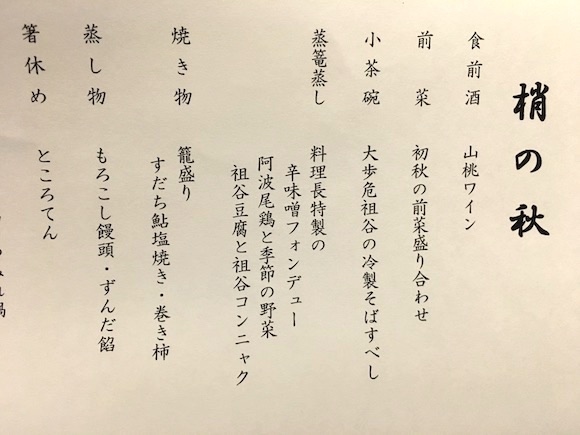 梢の秋
食前酒 山桃ワイン
前菜 初秋の前菜盛り合わせ
小茶碗 大歩危祖谷の冷製そばすべし
蒸篭蒸し 料理長特製の
辛味噌フォンデュー
阿波尾鶏と季節の野菜
祖谷豆腐と祖谷コンニャク
焼き物 籠盛り
すだち鮎塩焼き・巻き柿
蒸し物 もろこし饅頭・ずんだ餡
箸休め ところてん